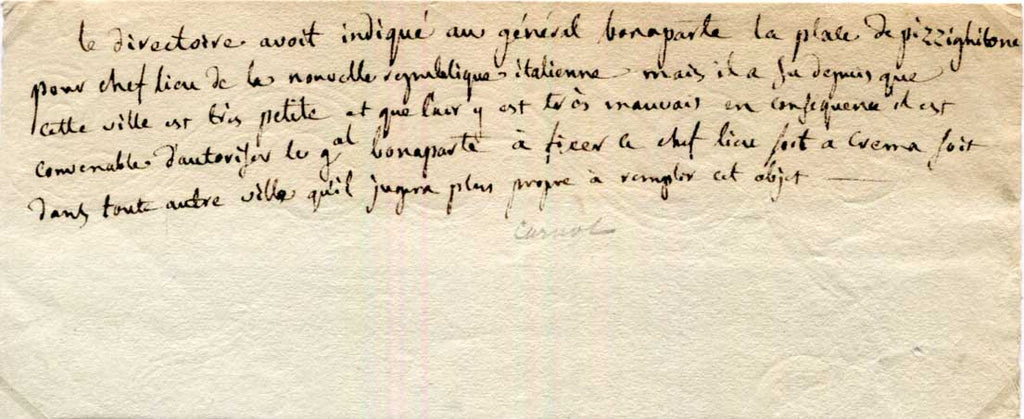 le directoire avoit indiqué au général bonaparte la place de pizzighitone
pour chef lieu de la nouvelle republique italienne mais il a su depuis que
cette ville est très petite et que l'air y est très mauvais en consequence il est
convenable d'autoriser le gal bonaparte à fixer le chef lieu soit a Crema soit
dans toute autre ville qu'il jugera plus propre à remplir cet objet —
Carnot